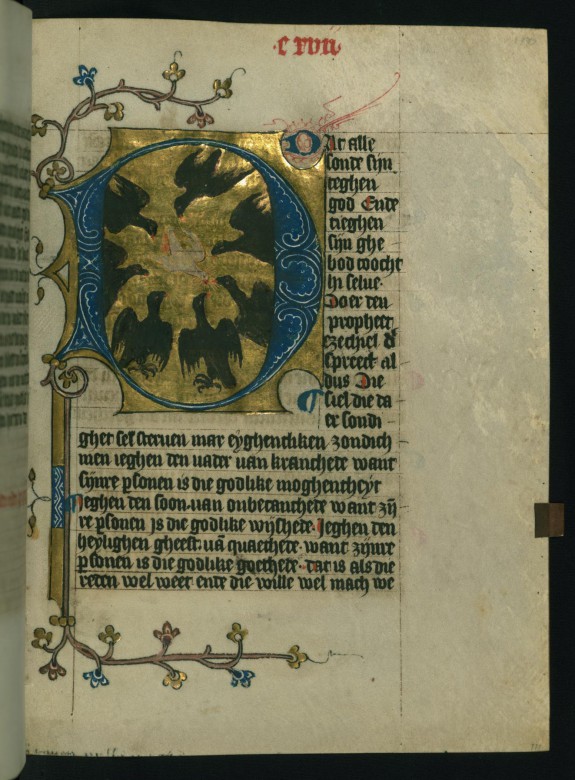 ·c xvii·
Ar alle
sonde sijn
teghen
god Ende
tieghen
sijn ghe
bod woocht
In selue·
Doer den
propheet
ezechiel
spreect al
dus Die
siel die da
er sondi
ghet sel steruen mar eyghentliken zondich
men ieghen den uader uan krancheде want
sijnre psonen is die godlike moghentheyt
Ieghen den soon uan onbecanthede want zij
re psonen is die godlike wijshede· Ieghen den
heylighen gheest uā quaethede· want zijnre
psonen is die godlike goethede· dat is als die
reden wel weet ende die wille wel mach we